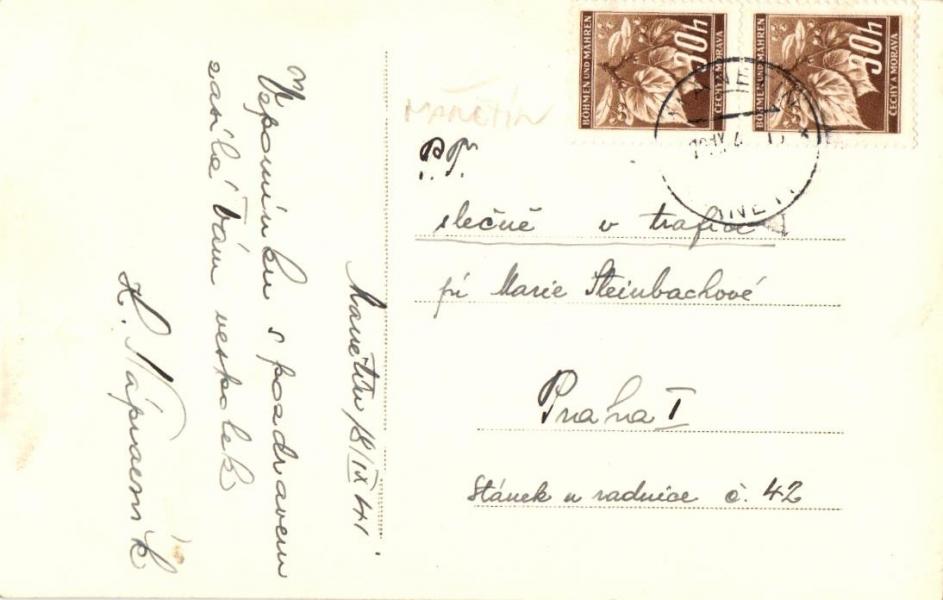 Manětín 18/IX 41
Vzpomínku s pozdravem
zasílá Vám vespolek
K. Nápravník
MANĚTÍN
P.T.
slečně v trafice
pí Marie Steinbachové
Praha I
Stánek u radnice č. 42
BÖHMEN UND MÄHREN
30h
ČECHY A MORAVA
BÖHMEN UND MÄHREN
30h
ČECHY A MORAVA